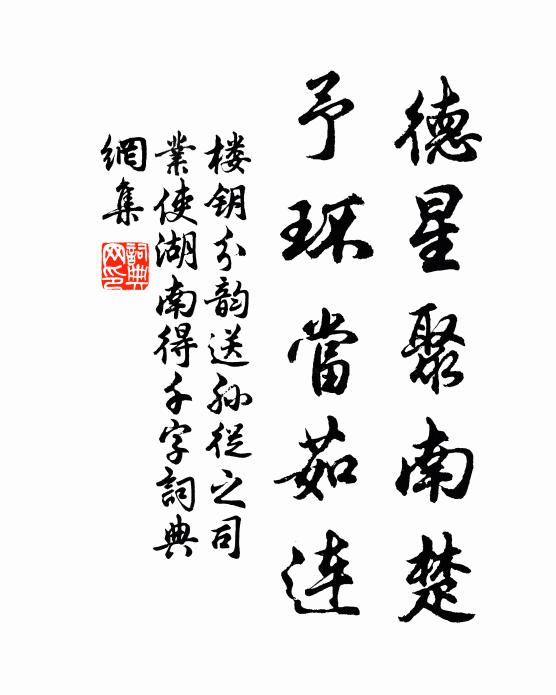 德星聚南楚
予环當茹连
楼钥分韵送孙從之司
業使湖南得千字詞典
網集
詞典网印